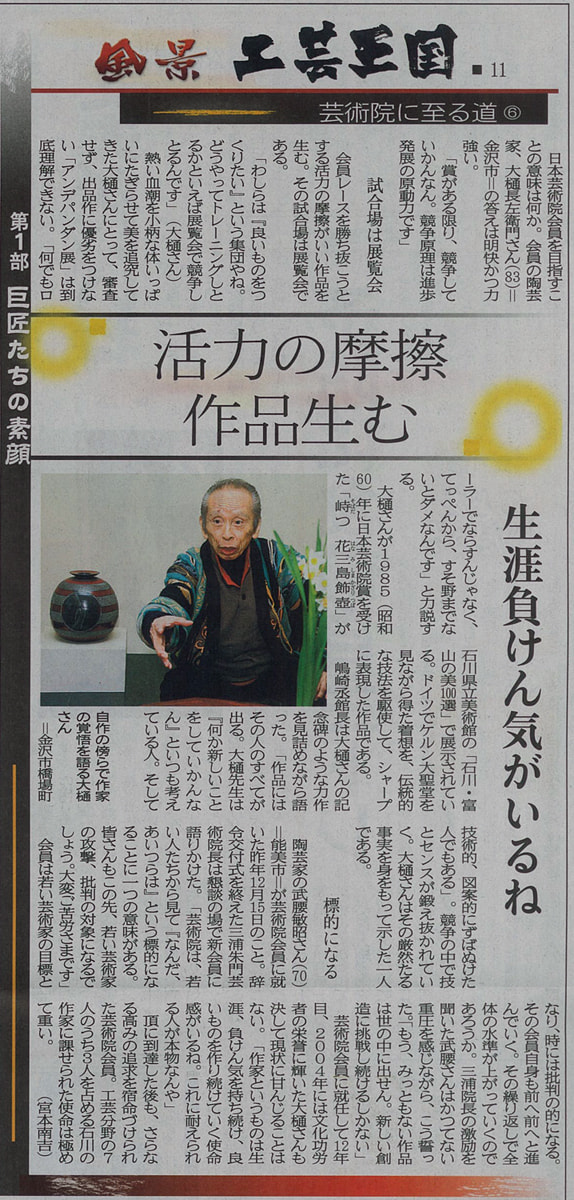 風景 工芸王国 ■11
芸術院に至る道⑥
第1部 巨匠たちの素顔
活力の摩擦
作品生む
生涯負けん気がいるね
日本芸術院会員を目指すこ
との意味は何か。会員の陶芸
家、大樋長左衛門さん(83)＝
金沢市＝の答えは明快かつ力
強い。
「賞がある限り、競争して
いかんなん。競争原理は進歩
発展の原動力です」
試合場は展覧会
会員レースを勝ち抜こうと
する活力の摩擦がいい作品を
生む。その試合場は展覧会で
ある。
「わしらは『良いものをつ
くりたい』という集団やね。
どうやってトレーニングしと
るかといえば展覧会で競争し
とるんです」（大樋さん）
熱い血潮を小柄な体いっぱ
いにたぎらせて美を追究して
きた大樋さんにとって、審査
せず、出品作に優劣をつけな
い「アンデパンダン展」は到
底理解できない。「何でもロ
ーラーでならすんじゃなく、
てっぺんから、すそ野までな
いとダメなんです」と力説す
る。
大樋さんが1985（昭和
60）年に日本芸術院賞を受け
た「峙つ 花三島飾壺」が
石川県立美術館の「石川・富
山の美100選」で展示されてい
る。ドイツでケルン大聖堂を
見ながら得た着想を、伝統的
な技法を駆使して、シャープ
に表現した作品である。
嶋崎丞館長は大樋さんの記
念碑のような力作
を見詰めながら語
った。「作品には
その人のすべてが
出る。大樋先生は
『何か新しいこと
をしていかんな
ん』といつも考え
ている人。そして
自作の傍らで作家
の覚悟を語る大樋
さん
＝金沢市橋場町
技術的、図案的にずばぬけた
人でもある」。競争の中で技
とセンスが鍛え抜かれてい
く。大樋さんはその厳然たる
事実を身をもって示した一人
である。
標的になる
陶芸家の武腰敏昭さん(70)
＝能美市＝が芸術院会員に就
いた昨年12月15日のこと。辞
令交付式を終えた三浦朱門芸
術院長は懇談の場で新会員に
語りかけた。「芸術院は、若
い人たちから見て『なんだ、
あいつらは』という標的にな
ることに一つの意味がある。
皆さんもこの先、若い芸術家
の攻撃、批判の対象になるで
しょう。大変ご苦労さまです」
会員は若い芸術家の目標と
なり、時には批判の的になる。
その会員自身も前へ前へと進
んでいく。その繰り返しで全
体の水準が上がっていくので
あろうか。三浦院長の激励を
聞いた武腰さんはかつてない
重圧を感じながら、こう誓っ
た。「もう、みっともない作品
は世の中に出せん。新しい創
造に挑戦し続けるしかない」
芸術院会員に就任して12年
目、2004年には文化功労
者の栄誉に輝いた大樋さんも
決して現状に甘んじることは
ない。「作家というものは生
涯、負けん気を持ち続け、良
いものを作り続けていく使命
感がいるね。これに耐えられ
る人が本物なんや」
頂に到達した後も、さらな
る高みの追求を宿命づけられ
た芸術院会員。工芸分野の7
人のうち3人を占める石川の
作家に課せられた使命は極め
て重い。（宮本南吉）